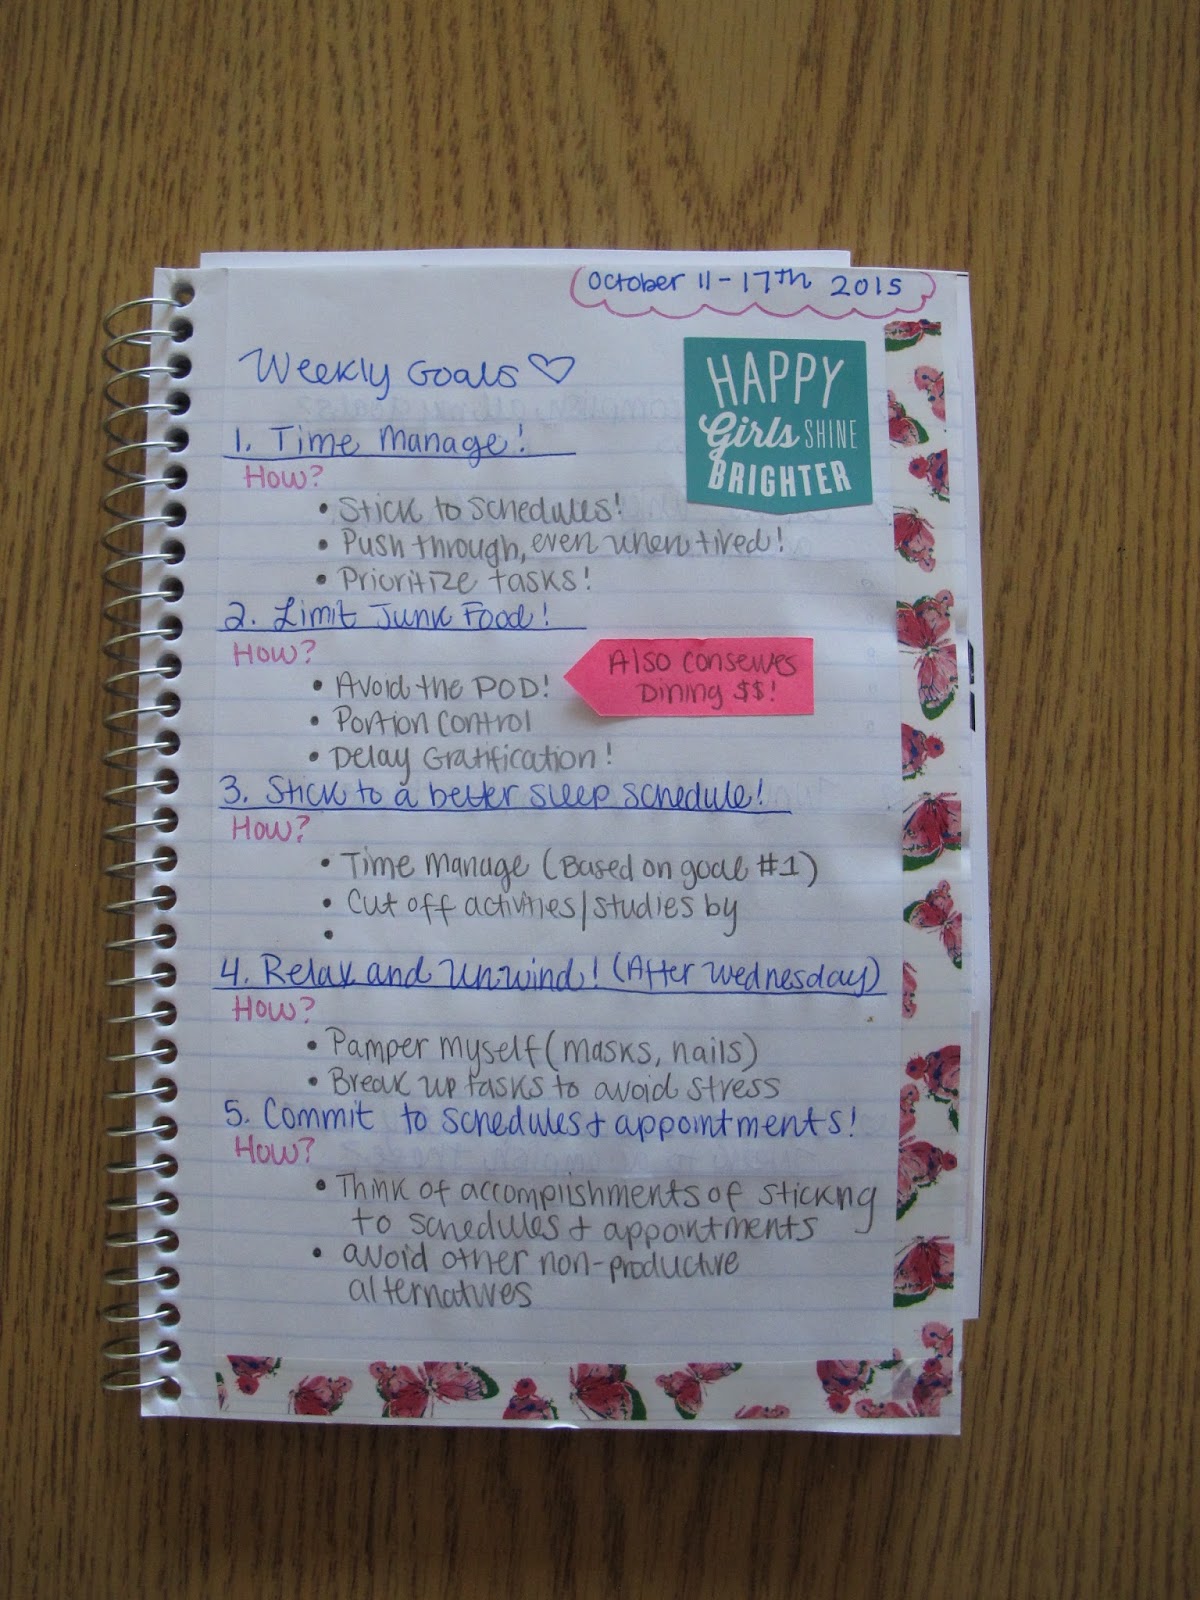 October 11-17th 2015
Weekly Goals ♡
HAPPY
Girls SHINE
BRIGHTER
1. Time Manage!
How?
• Stick to schedules!
• Push through, even when tired!
• Prioritize tasks!
2. Limit Junk Food!
How?
• Avoid the POD!
Also conserves
Dining $$!
• Portion Control
• Delay Gratification!
3. Stick to a better sleep schedule!
How?
• Time manage (Based on goal #1)
• Cut off activities/studies by
•
4. Relax and Unwind! (After Wednesday)
How?
• Pamper myself (masks, nails)
• Break up tasks to avoid stress
5. Commit to schedules + appointments!
How?
• Think of accomplishments of stickng
to schedules + appointments
• avoid other non-productive
alternatives